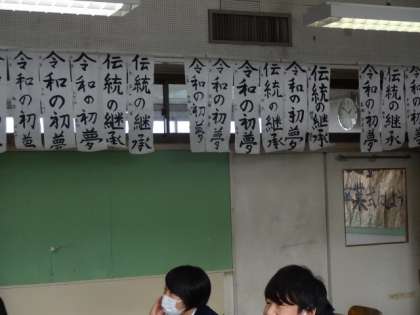 令和の初夢
令和の初夢
令和の初夢
伝統の継承
伝統の継承
令和の初夢
令和の初夢
令和の初夢
伝統の継承
令和の初夢
伝統の継承
令和の初夢
伝統の継承
令和の初夢